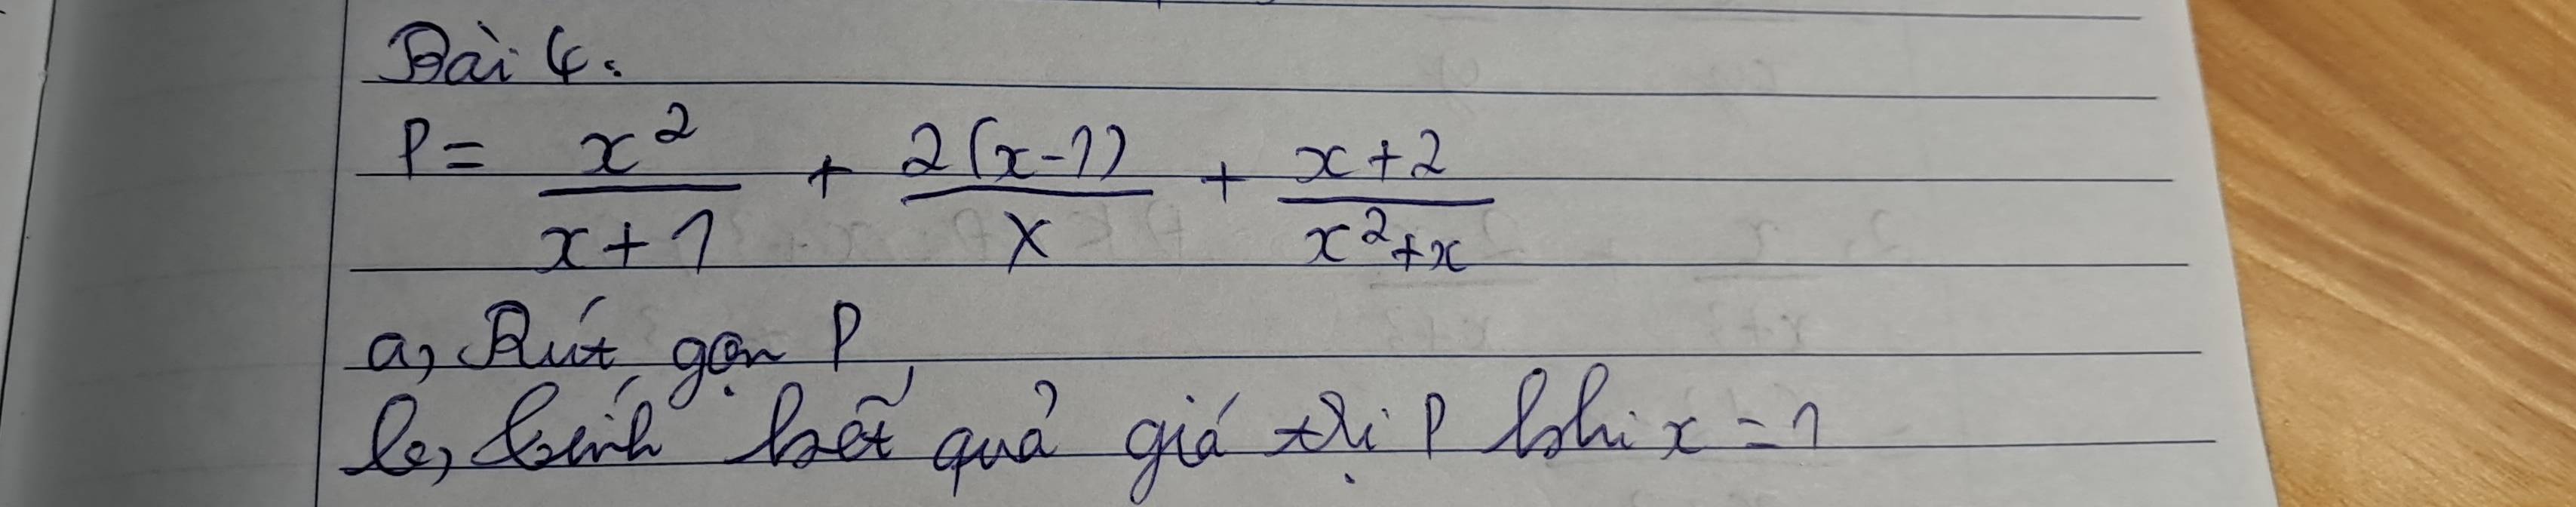 Bài 4:
P = x²/(x+1) + 2(x-1)/x + (x+2)/(x²+x)
a, Rút gọn P
b, tính kết quả giá trị P khi x = 1